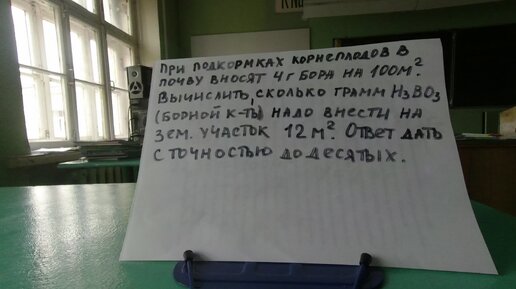 При подкормках корнеплодов в
почву вносят 4 г бора на 100 м².
Вычислить, сколько грамм H₃BO₃
(борной к-ты) надо внести на
зем. участок 12 м². Ответ дать
с точностью до десятых.